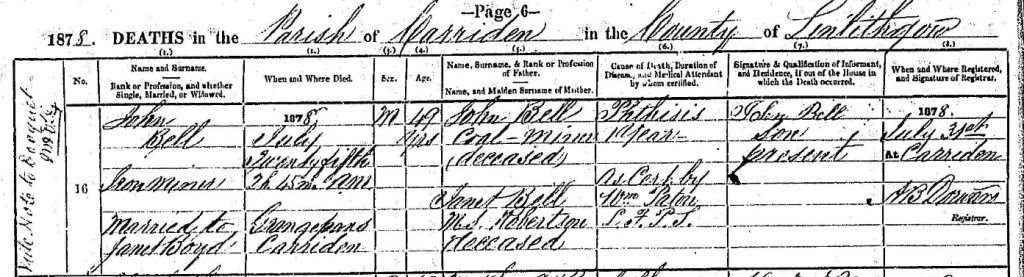 —Page 6—
1878. DEATHS in the Parish of Carriden in the County of Linlithgow
(1.) (2.) (3.) (4.) (5.) (6.) (7.) (8.)
No.
Name and Surname.
Rank or Profession, and whether
Single, Married, or Widowed.
When and Where Died.
Sex.
Age.
Name, Surname, & Rank or Profession
of Father.
Name, and Maiden Surname of Mother.
Cause of Death, Duration of
Disease, and Medical Attendant
by whom certified.
Signature & Qualification of Informant,
and Residence, if out of the House in
which the Death occurred.
When and Where Registered,
and Signature of Registrar.
16
John
Bell
Iron miner
Married to
Janet Boyd
1878
July
Twenty fifth
2h 45m am
Grangepans
Carriden
M
49
yrs
John Bell
Coal-miner
(deceased)
Janet Bell
M.S. Robertson
deceased
Phthisis
1 Year
As Cert by
Wm
L.F.P.S.
Bell
Son
present
1878
July 31st
At Carriden
Registrar.